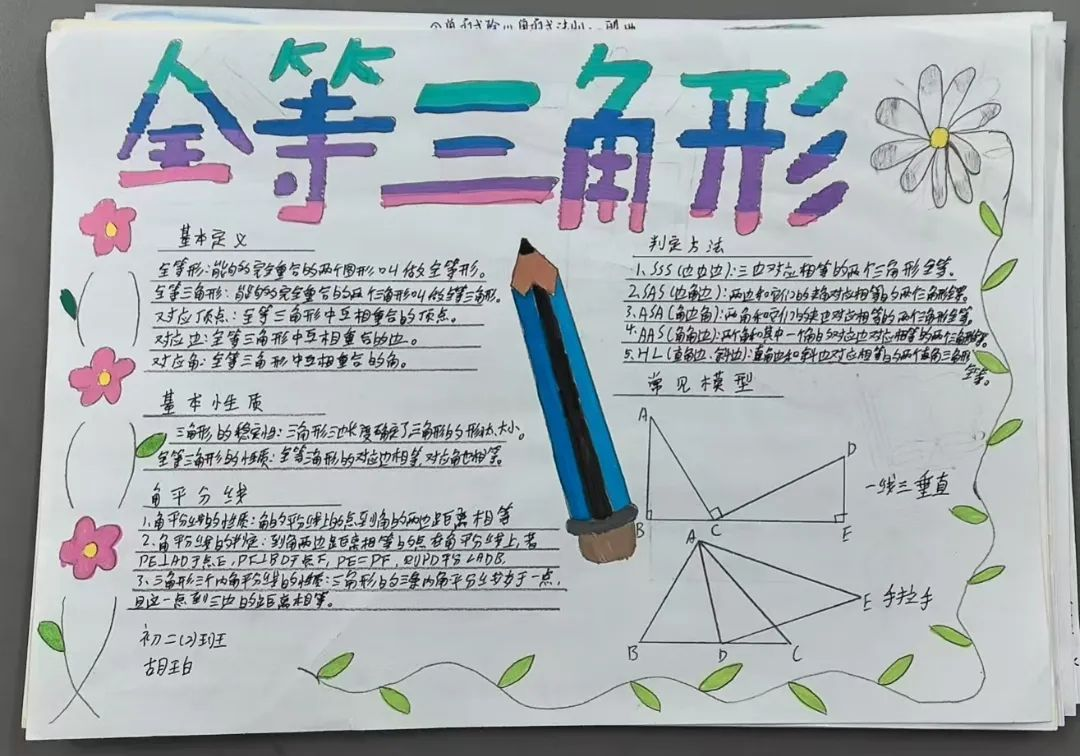 全等三角形
基本定义
全等形:能够完全重合的两个图形叫做全等形。
全等三角形:能够完全重合的两个三角形叫做全等三角形。
对应顶点:全等三角形中互相重合的顶点。
对应边:全等三角形中互相重合的边。
对应角:全等三角形中互相重合的角。
基本性质
三角形的稳定性:三角形三边长度确定了三角形的形状、大小。
全等三角形的性质:全等三角形的对应边相等,对应角也相等。
角平分线
1.角平分线的性质:角的平分线上的点到角的两边距离相等
2.角平分线的判定:到角两边距离相等的点在角平分线上,若
PE⊥AD于点E,PF⊥BD于点F,PE=PF,
3.三角形三个内角平分线的性质:三角形的三条内角平分线交于一点,
且这一点到三边的距离相等。
初二(2)班
判定方法
1.SSS(边边边):三边对应相等的两个三角形全等。
2.SAS(边角边):两边和它们的夹角对应相等的两个三角形全等。
3.ASA(角边角):两角和它们的夹边对应相等的两个三角形全等
4.AAS(角角边):两个角和其中一个角的对应边对应相等的两个三角形全等。
5.HL(直角边、斜边):直角边和斜边对应相等的两个直角三角形
全等。
常见模型
A
D
B
C
E
一线三垂直
A
E
手拉手
B
D
C